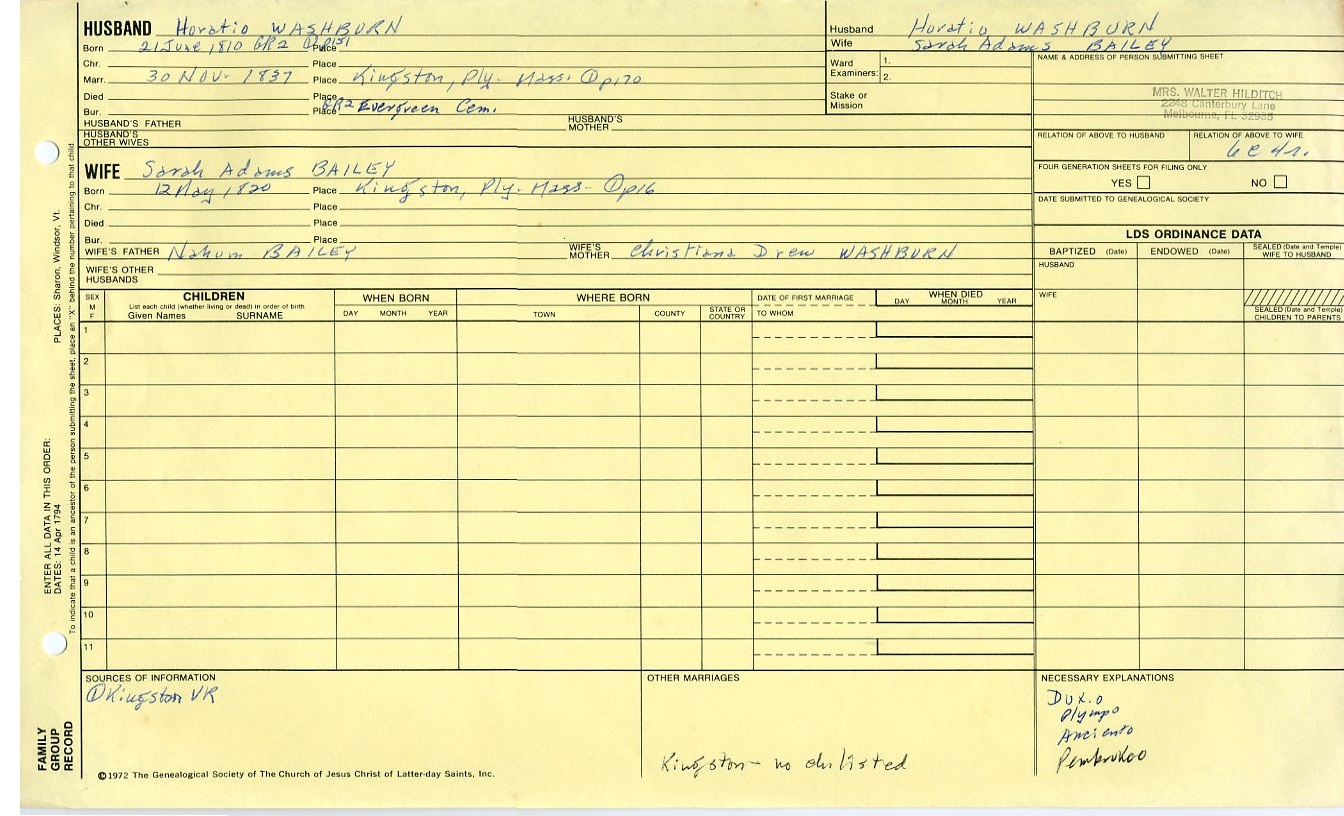 HUSBAND Horatio WASHBURN
Born 21 June 1810 GR2 ① p151 Place
Chr. Place
Marr. 30 Nov. 1837 Place Kingston, Ply. Mass. ① p170
Died Place
Bur. Place GR2 Evergreen Cem.
HUSBAND'S FATHER HUSBAND'S MOTHER
HUSBAND'S OTHER WIVES
Husband Horatio WASHBURN
Wife Sarah Adams BAILEY
Ward Examiners: 1.
2.
Stake or Mission
NAME & ADDRESS OF PERSON SUBMITTING SHEET
MRS. WALTER HILDITCH
2248 Canterbury Lane
Melbourne, FL 32935
RELATION OF ABOVE TO HUSBAND RELATION OF ABOVE TO WIFE
6c 4r.
FOUR GENERATION SHEETS FOR FILING ONLY
YES NO
DATE SUBMITTED TO GENEALOGICAL SOCIETY
WIFE Sarah Adams BAILEY
Born 12 May 1820 Place Kingston, Ply. Mass- ① p16
Chr. Place
Died Place
Bur. Place
WIFE'S FATHER Nahum BAILEY WIFE'S MOTHER Christiana Drew WASHBURN
WIFE'S OTHER HUSBANDS
LDS ORDINANCE DATA
BAPTIZED (Date) ENDOWED (Date) SEALED (Date and Temple) WIFE TO HUSBAND
HUSBAND
WIFE
SEALED (Date and Temple) CHILDREN TO PARENTS
SEX M F
CHILDREN
List each child (whether living or dead) in order of birth
Given Names SURNAME
WHEN BORN
DAY MONTH YEAR
WHERE BORN
TOWN COUNTY STATE OR COUNTRY
DATE OF FIRST MARRIAGE
TO WHOM
WHEN DIED
DAY MONTH YEAR
1
2
3
4
5
6
7
8
9
10
11
PLACES: Sharon, Windsor, Vt.
To indicate that a child is an ancestor of the person submitting the sheet, place an "X" behind the number pertaining to that child.
ENTER ALL DATA IN THIS ORDER:
DATES: 14 Apr 1794
FAMILY GROUP RECORD
SOURCES OF INFORMATION
① Kingston VR
©1972 The Genealogical Society of The Church of Jesus Christ of Latter-day Saints, Inc.
OTHER MARRIAGES
Kingston - no ch listed
NECESSARY EXPLANATIONS
Dux.o
Plympo
Anciento
Pembrokeo